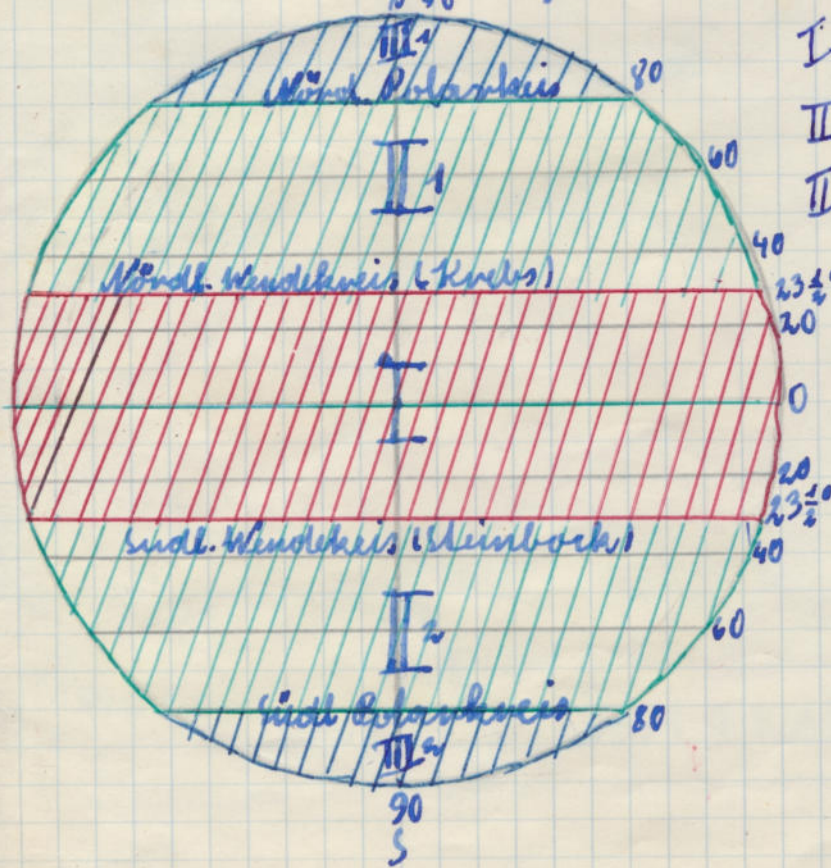 III 1
Nördl. Polarkreis 80
II 1
60
40
Nördl. Wendekreis (Krebs) 23½°
20
I
0
20
23½°
südl. Wendekeis (Steinbock)
40
II 2
60
südl Polarkreis 80
III 2
90
S
I
II
III